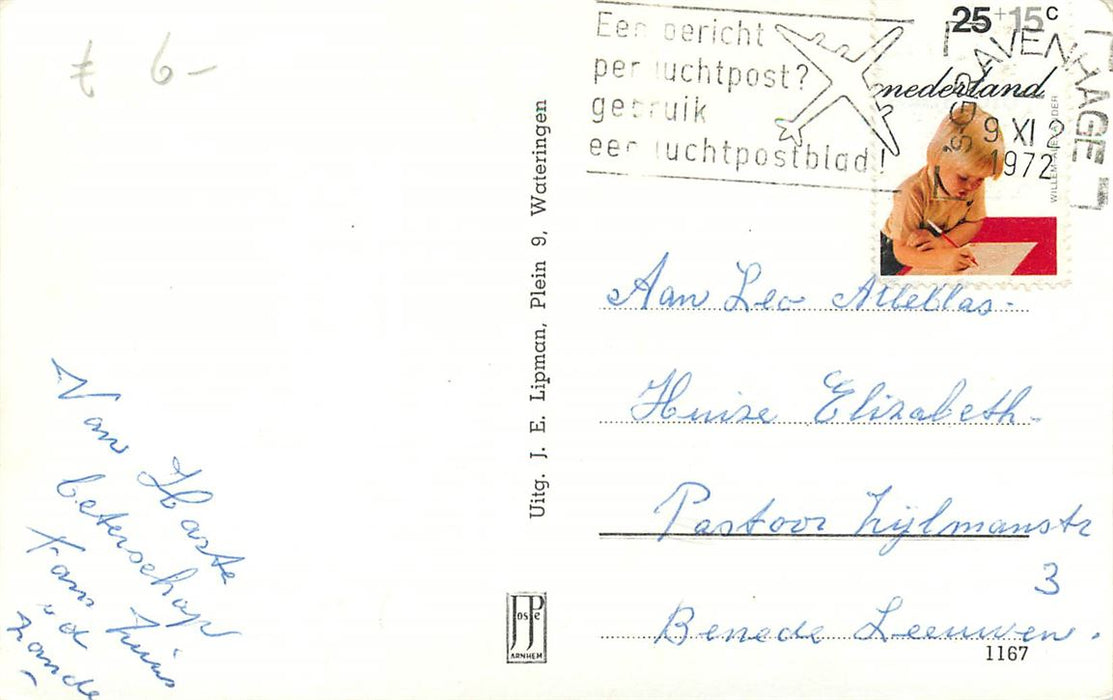 £ 6-
Een bericht
per luchtpost?
gebruik
een luchtpostblad!
25+15c
nederland
WILLEM-ALEXANDER
'S-GRAVENHAGE
9 XI 2
1972
Uitg. J. E. Lipman, Plein 9, Wateringen
Aan Leo Attellas-
Huize Elizabeth-
Pastoor Zijlmanstr
3
Benede Leeuwen.
1167
Van Harte
beterschap
Fam
v d
zande
JosPe
ARNHEM